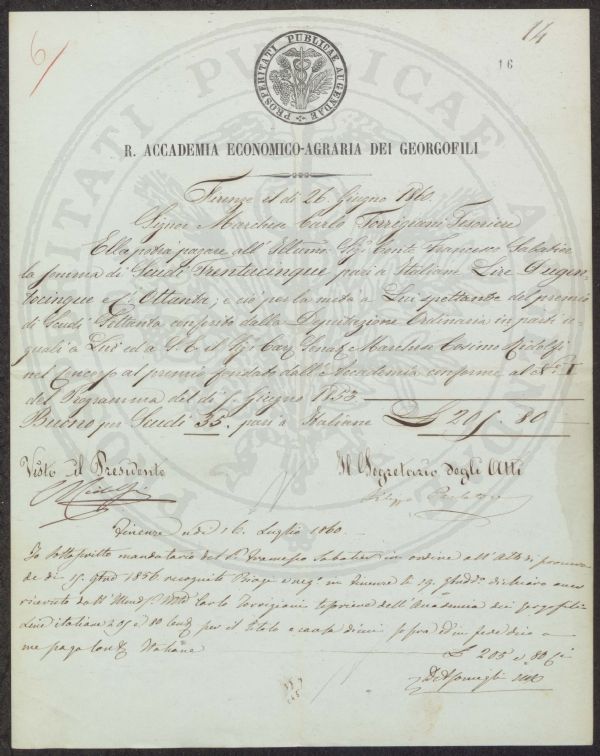 6
14
16
PROSPERITATI PUBLICAE AUGENDAE
R. ACCADEMIA ECONOMICO-AGRARIA DEI GEORGOFILI
Firenze el di 26. Giugno 1860.
Signor Marchese Carlo Torrigiani Tesoriere
Ella potrà pagare all' Illmo Sig. Conte Francesco Sabatier
la somma di Scudi Trentacinque pari a Italiane Lire Dugen
tocinque e C. Ottanta; e ciò per la metà a Lui spettante del premio
di Scudi Settanta conferito dalla Deputazione Ordinaria in parti e-
guali a Lui ed a S. E. il Sig. Cav. Senat. Marchese Cosimo Ridolfi
nel Concorso al premio fondato dall' Accademia conforme al N. I
del Programma del di 5. Giugno 1853.
Buono per Scudi 35. pari a Italiane £ 205. 80
Visto il Presidente
Il Segretario degli Atti
Ridolfi
Firenze a di 16. Luglio 1860.
Io sottoscritto mandatario del Francesco Sabatier in ordine all' Atto di procura
de di 15 1856 recognito in Firenze le 19 dichiaro aver
ricevuto dall' Carlo Torrigiani tesoriere dell' Accademia dei Georgofili
Lire italiane 205 e 80 per il titolo e causa di cui sopra ed in fede dico a
me Italiane £ 205 e 80